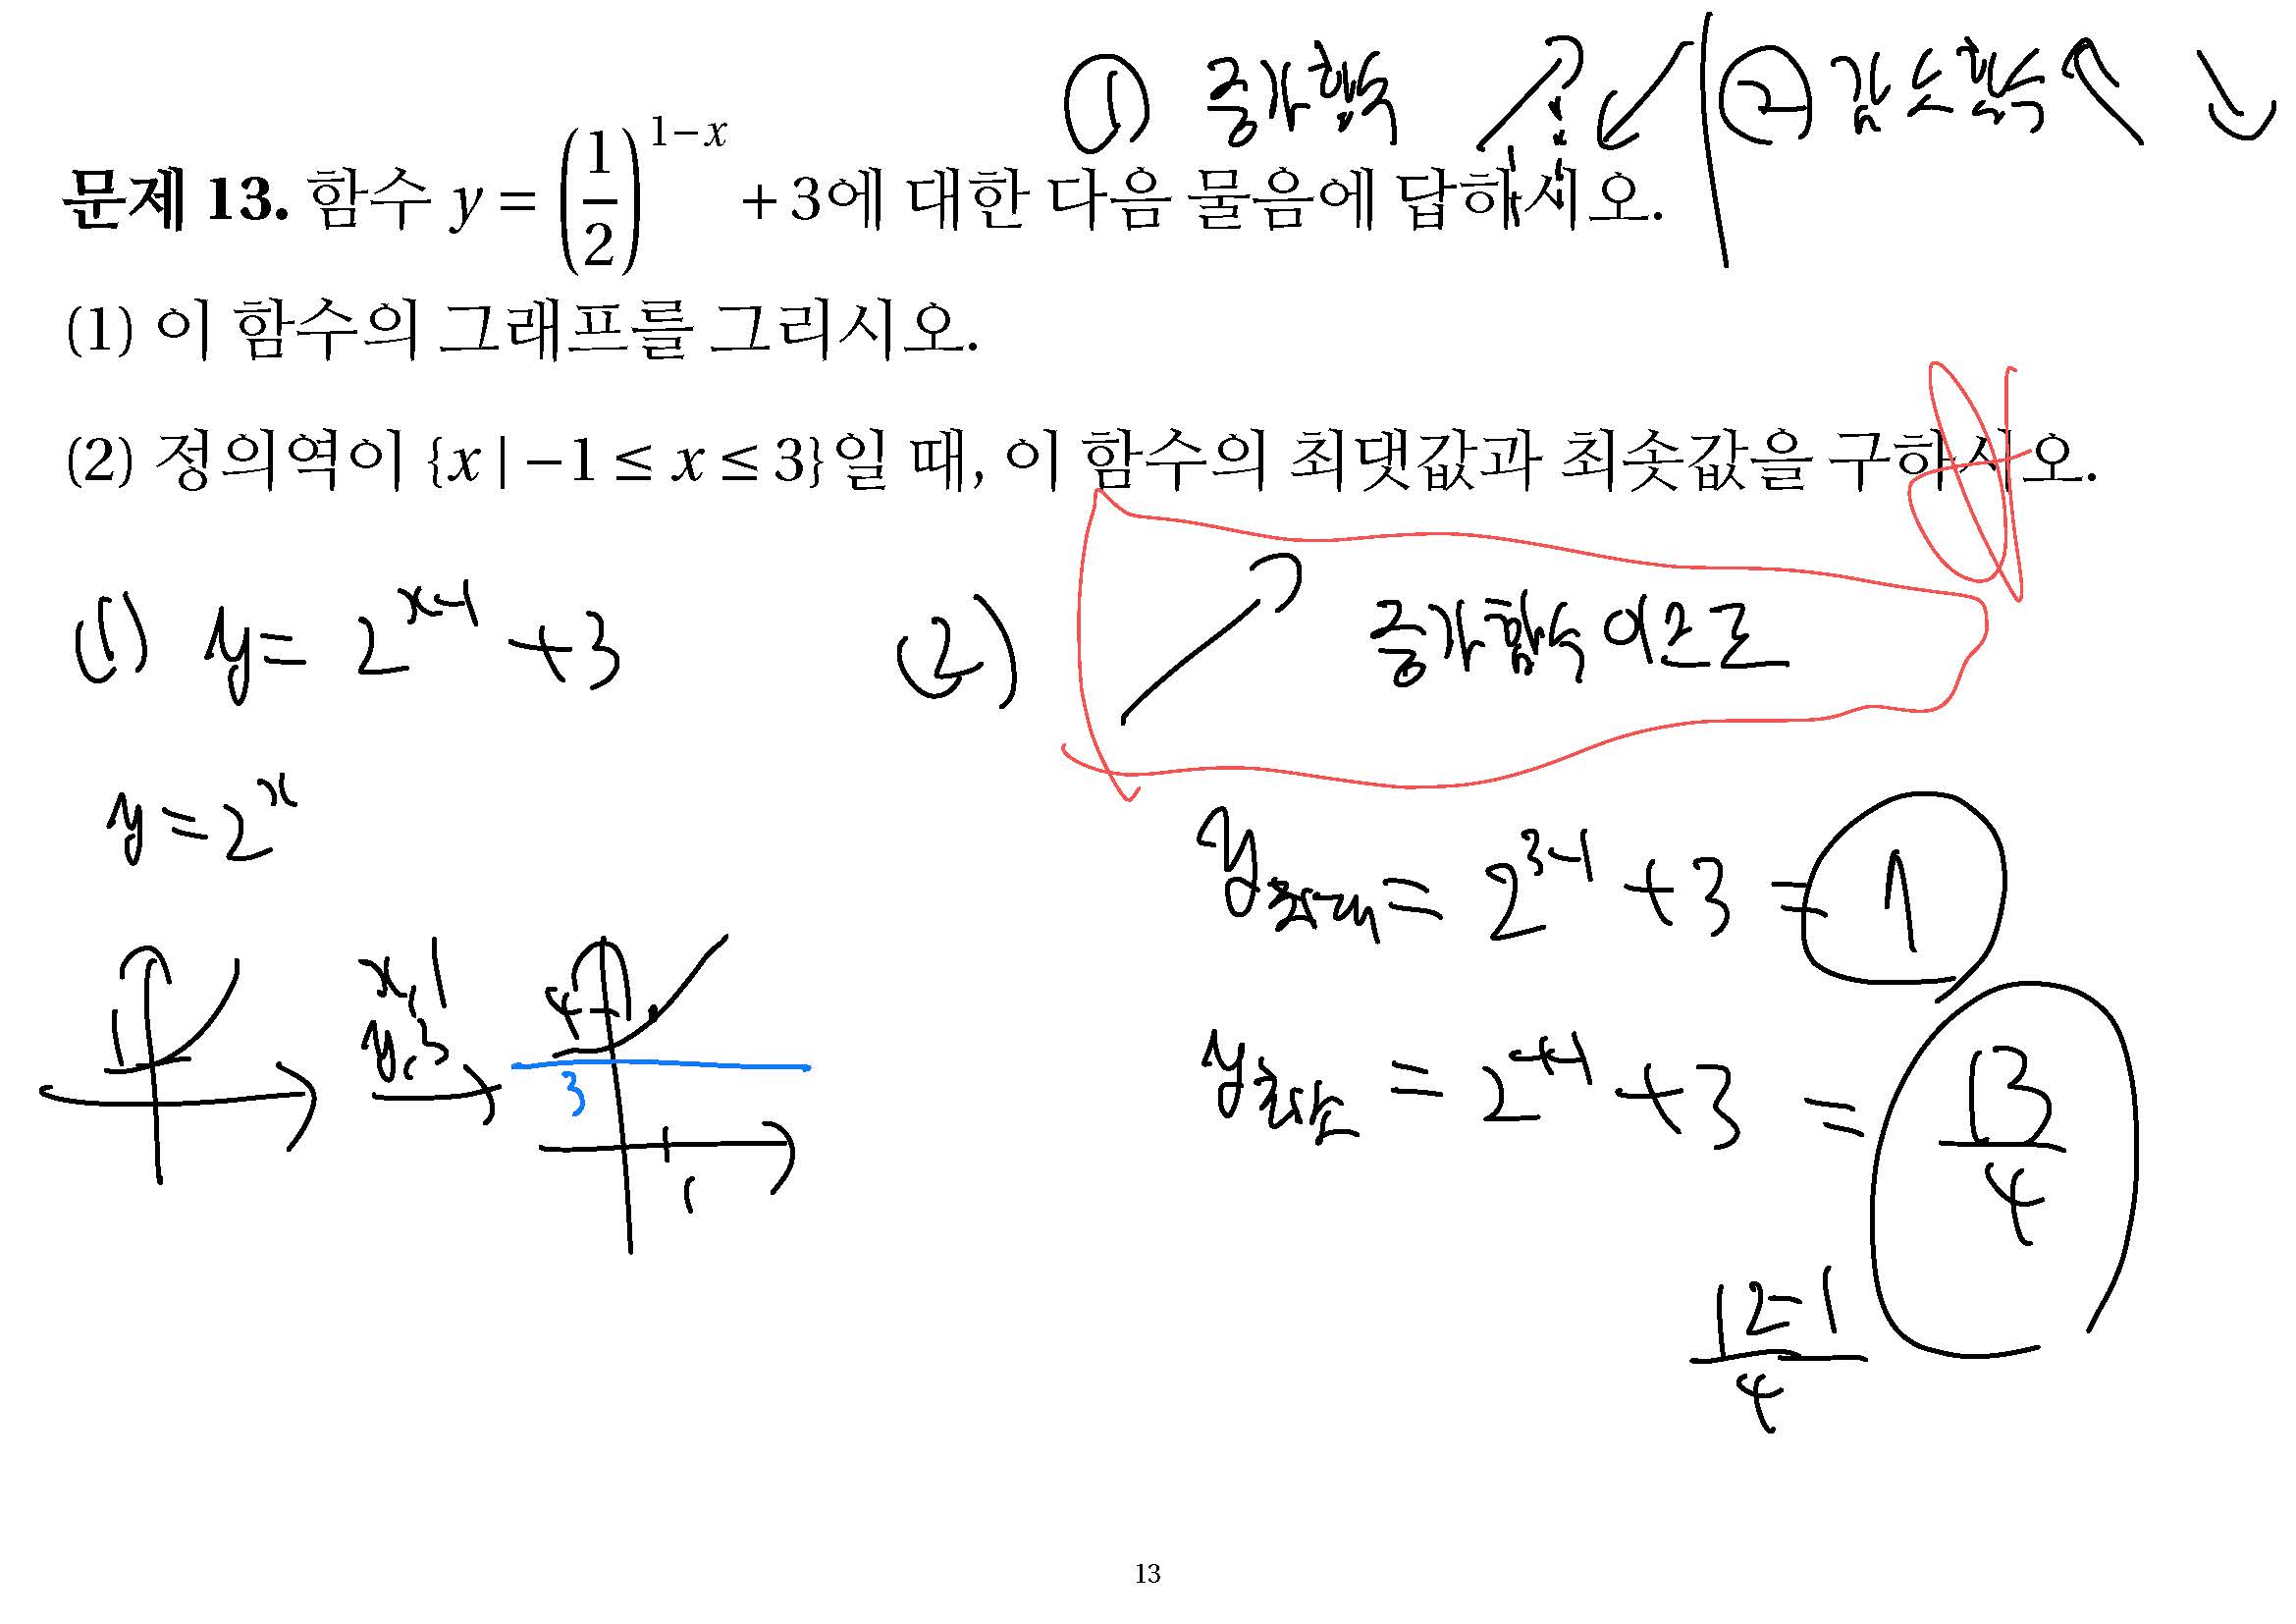 ① 증가함수 ② 감소함수
문제 13. 함수 y = (1/2)^{1-x} + 3에 대한 다음 물음에 답하시오.
(1) 이 함수의 그래프를 그리시오.
(2) 정의역이 {x | -1 ≤ x ≤ 3}일 때, 이 함수의 최댓값과 최솟값을 구하시오.
(1) y = 2^{x-1} + 3
(2) 증가함수 이므로
y = 2^x
y최대 = 2^{3-1} + 3 = 7
1
x, 1
y, 3
4
3
1
y최소 = 2^{-1-1} + 3 = 13/4
12-1
4
13